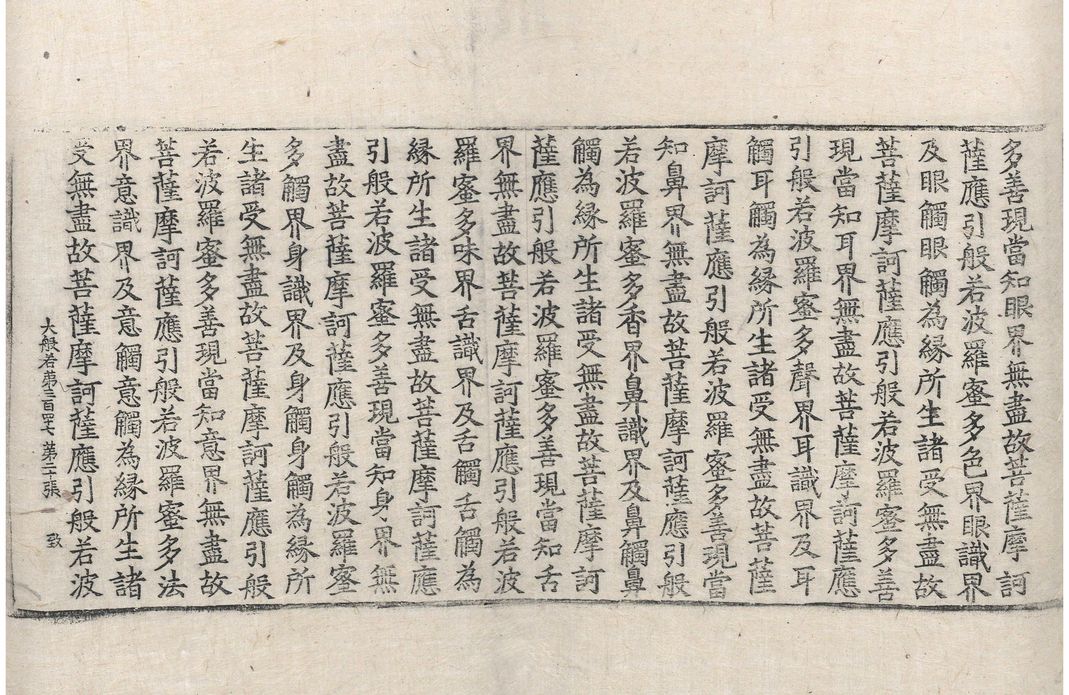 多善現當知眼界無盡故菩薩摩訶
薩應引般若波羅蜜多色界眼識界
及眼觸眼觸為縁所生諸受無盡故
菩薩摩訶薩應引般若波羅蜜多善
現當知耳界無盡故菩薩摩訶薩應
引般若波羅蜜多聲界耳識界及耳
觸耳觸為縁所生諸受無盡故菩薩
摩訶薩應引般若波羅蜜多善現當
知鼻界無盡故菩薩摩訶薩應引般
若波羅蜜多香界鼻識界及鼻觸鼻
觸為縁所生諸受無盡故菩薩摩訶
薩應引般若波羅蜜多善現當知舌
界無盡故菩薩摩訶薩應引般若波
羅蜜多味界舌識界及舌觸舌觸為
縁所生諸受無盡故菩薩摩訶薩應
引般若波羅蜜多善現當知身界無
盡故菩薩摩訶薩應引般若波羅蜜
多觸界身識界及身觸身觸為縁所
生諸受無盡故菩薩摩訶薩應引般
若波羅蜜多善現當知意界無盡故
菩薩摩訶薩應引般若波羅蜜多法
界意識界及意觸意觸為縁所生諸
受無盡故菩薩摩訶薩應引般若波
大般若第三百四七 第二張 致